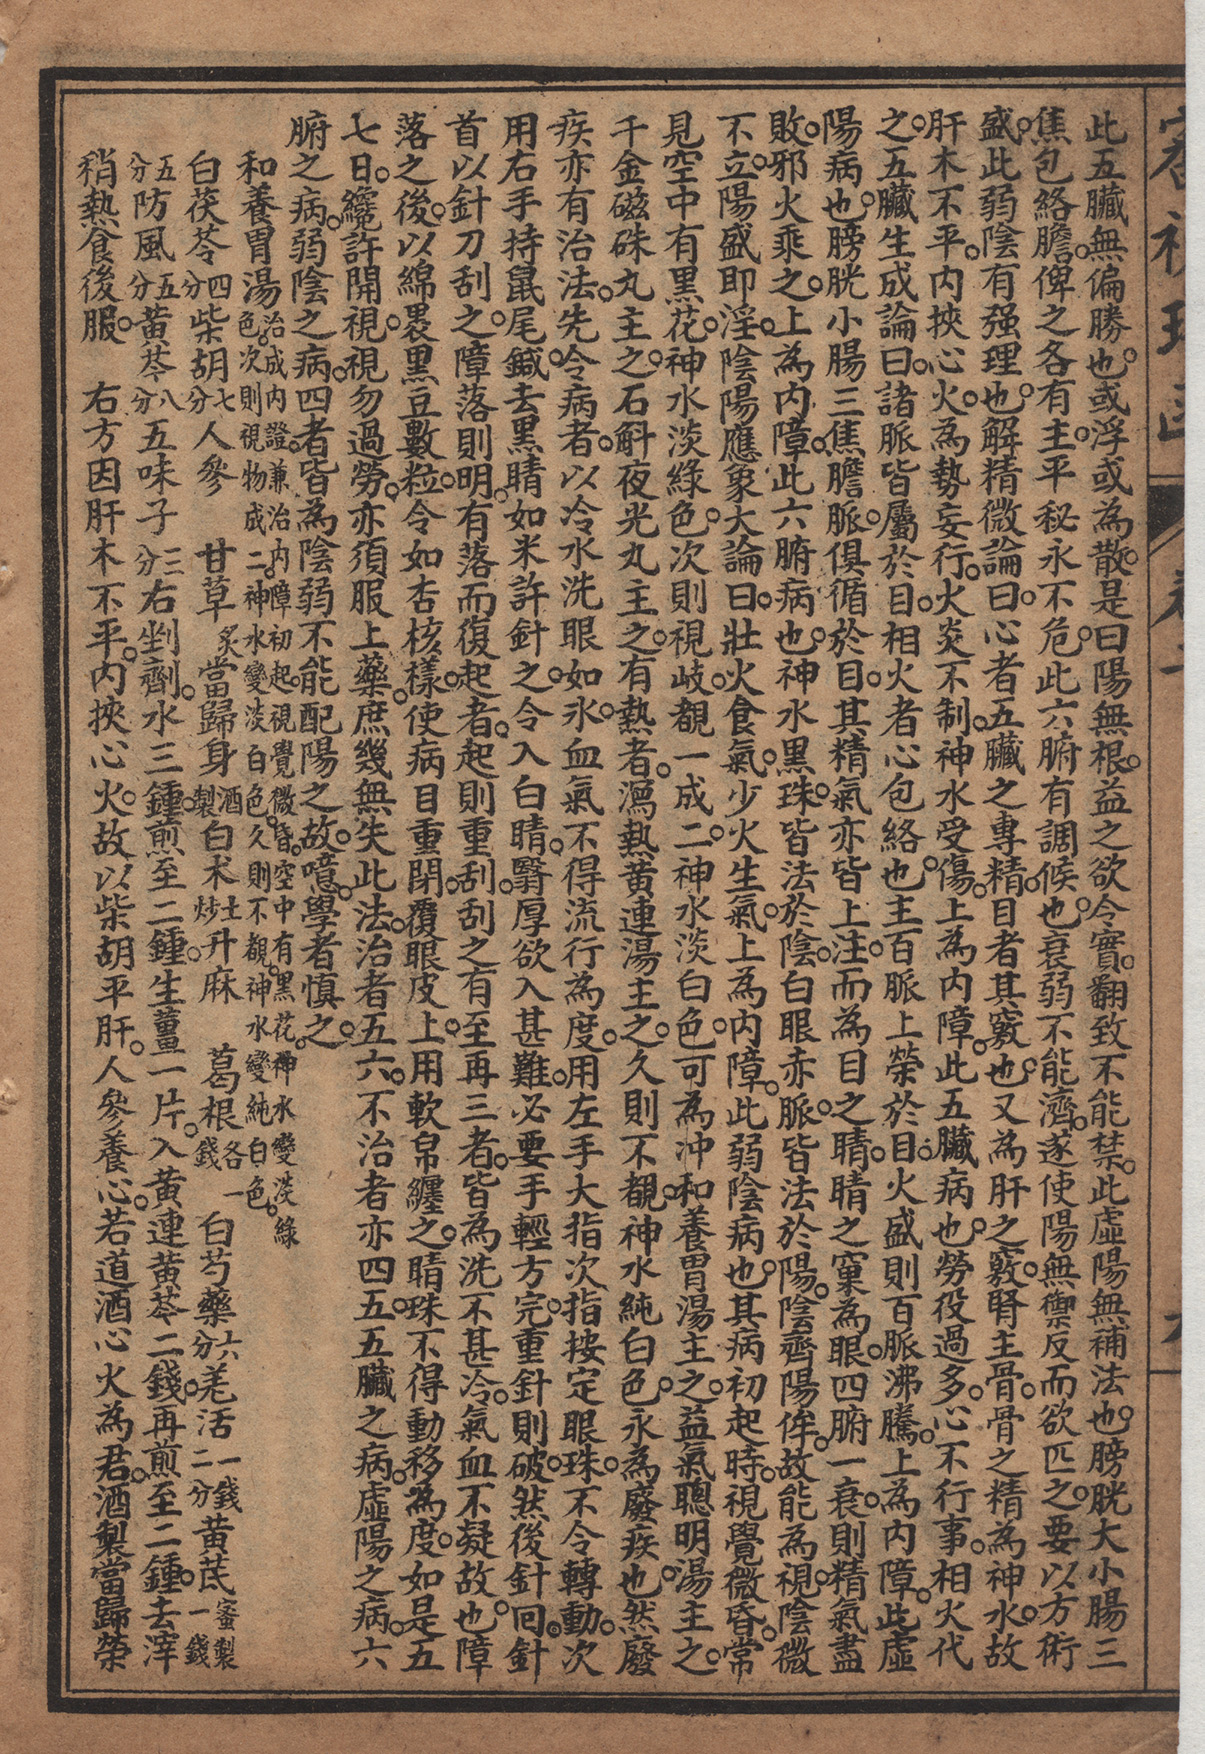 此五臟無偏勝也。或浮或為散。是曰陽無根。益之欲令實。翻致不能禁。此虛陽無補法也。膀胱大小腸三
焦包絡膽。俾之各有主。平秘永不危。此六腑有調候也。衰弱不能濟。遂使陽無禦。反而欲匹之。要以方術
盛。此弱陰有强理也。解精微論曰。心者五臟之專精。目者其竅也。又為肝之竅。腎主骨。骨之精為神水。故
肝木不平。內挾心火。為勢妄行。火炎不制。神水受傷。上為內障。此五臟病也。勞役過多。心不行事。相火代
之。五臟生成論曰。諸脈皆屬於目。相火者心包絡也。主百脈上榮於目。火盛則百脈沸騰。上為內障。此虛
陽病也。膀胱小腸三焦膽脈。俱循於目。其精氣亦皆上注。而為目之睛。睛之窠為眼。四腑一衰。則精氣盡
敗。邪火乘之。上為內障。此六腑病也。神水黑珠。皆法於陰。白眼赤脈。皆法於陽。陰齊陽侔。故能為視。陰微
不立。陽盛即淫。陰陽應象大論曰。壯火食氣。少火生氣。上為內障。此弱陰病也。其病初起時。視覺微昏。常
見空中有黑花。神水淡綠色。次則視岐。覩一成二。神水淡白色。可為冲和養胃湯主之。益氣聰明湯主之。
千金磁硃丸主之。石斛夜光丸主之。有熱者。瀉熱黄連湯主之。久則不覩。神水純白色。永為廢疾也。然廢
疾亦有治法。先令病者。以冷水洗眼如氷。血氣不得流行為度。用左手大指次指按定眼珠。不令轉動。次
用右手持鼠尾鍼。去黑睛如米許針之。令入白睛。翳厚欲入甚難。必要手輕方完。重針則破。然後針回。針
首以針刀刮之。障落則明。有落而復起者。起則重刮。刮之有至再三者。皆為洗不甚冷。氣血不凝故也。障
落之後。以綿裹黑豆數粒。令如杏核樣。使病目重閉。覆眼皮上。用軟帛纏之。睛珠不得動移為度。如是五
七日。纔許開視。視勿過勞。亦須服上藥。庶幾無失。此法治者五六。不治者亦四五。五臟之病。虛陽之病。六
腑之病。弱陰之病。四者皆為陰弱不能配陽之故。噫。學者慎之。
和養胃湯 治成內證。兼治內障初起。視覺微昏。空中有黑花。神水變淡綠色。次則視物成二。神水變淡白色。久則不覩。神水變純白色。
白茯苓四分 柴胡七分 人參 甘草炙 當歸身酒製 白术土炒 升麻 葛根各一錢 白芍藥六分 羌活一錢二分 黄芪蜜製一錢
五分 防風五分 黄芩八分 五味子三分 右剉劑。水三鍾。煎至二鍾。生薑一片。入黄連黄芩二錢。再煎至二鍾。去滓
稍熱食後服。 右方因肝木不平。內挾心火。故以柴胡平肝。人參養心。若道酒心火為君。酒製當歸榮